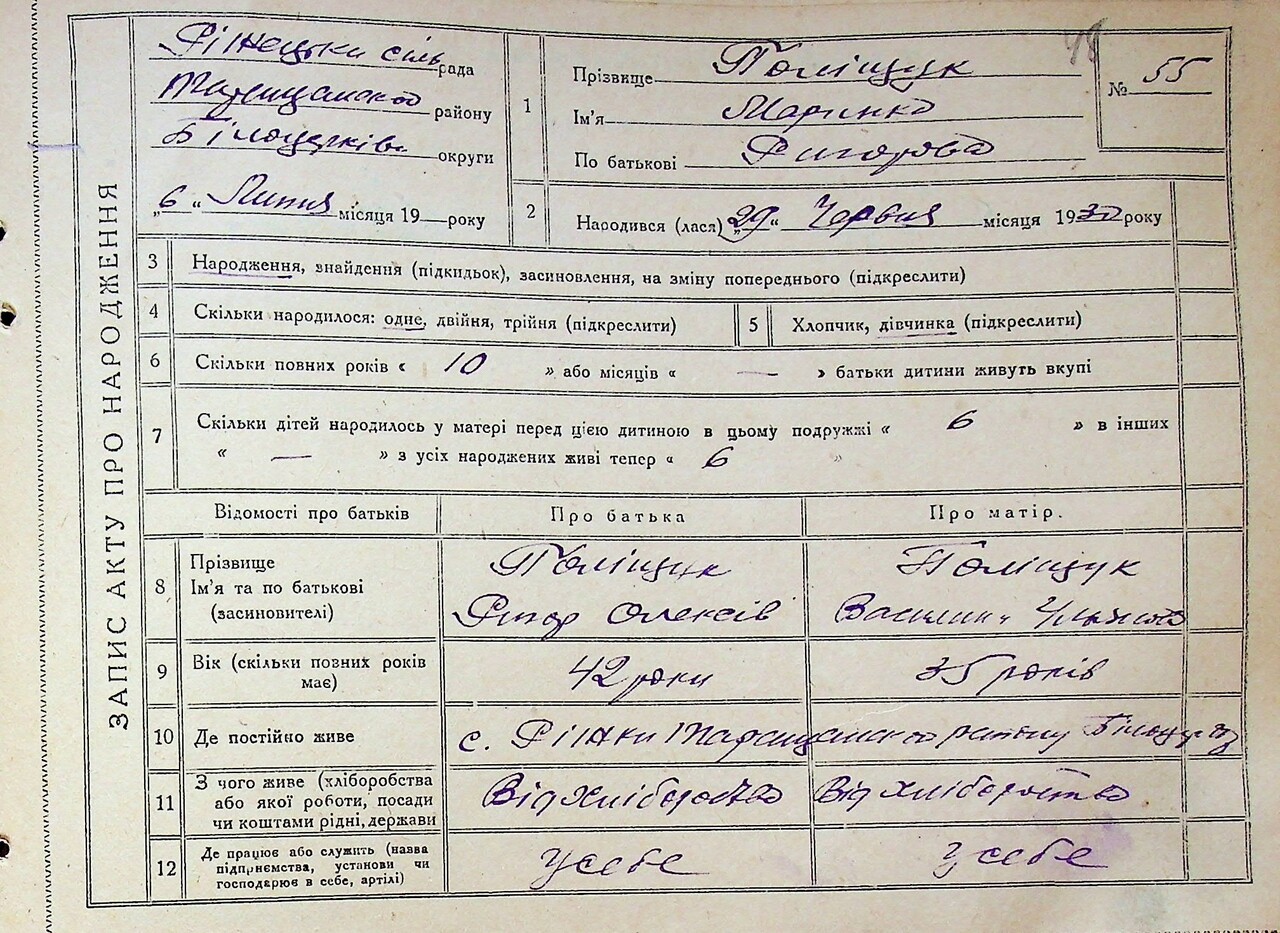 ЗАПИС АКТУ ПРО НАРОДЖЕННЯ
сіль рада
Таращанского району
Білоцерків. округи
„6“ Липня місяця 19— року
48
№ 55
1
Прізвище Поліщук
Ім'я Маринка
По батькові Ригорова
2
Народився (лася) „29“ Червня місяця 1930 року
3 Народження, знайдення (підкидьок), засиновлення, на зміну попереднього (підкреслити)
4 Скільки народилося: одне, двійня, трійня (підкреслити)
5 Хлопчик, дівчинка (підкреслити)
6 Скільки повних років « 10 » або місяців « — » батьки дитини живуть вкупі
7 Скільки дітей народилось у матері перед цією дитиною в цьому подружжі « 6 » в інших
« — » з усіх народжених живі тепер « 6 »
Відомості про батьків Про батька Про матір.
8 Прізвище Поліщук Поліщук
Ім'я та по батькові
(засновителі) Ригор Олексів
9 Вік (скільки позних років
має) 42 роки 35 років
10 Де постійно живе с. Таращанского району
11 З чого живе (хліборобства
або якої роботи, посади
чи коштами рідні, держави Від Хліборобства Від хліборобства
12 Де працює або служить (назва
підприємства, установи чи
господарює в себе, артілі) У себе У себе